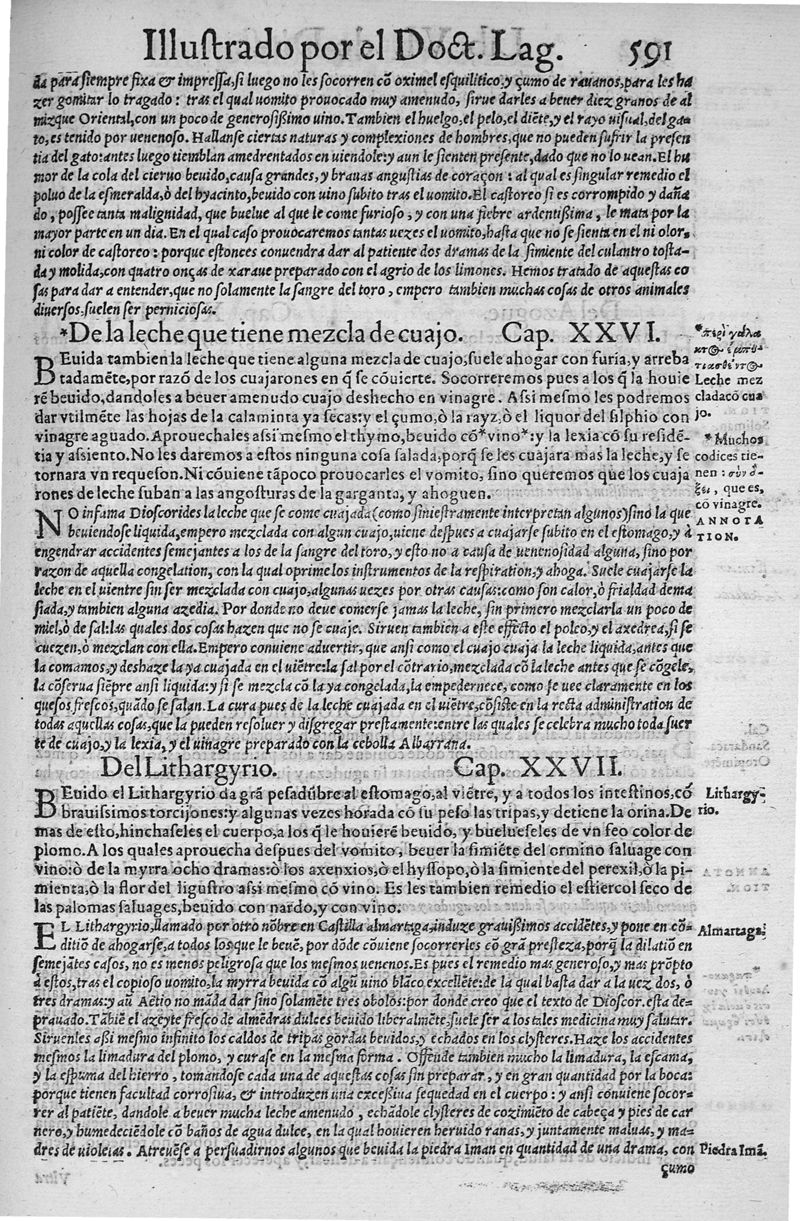 Illuſtrado por el Doct. Lag. 591
da para ſiempre fixa & impreſſa, ſi luego no les ſocorren cõ oximel eſquilitico: y çumo de rauanos, para les ha
zer gomitar lo tragado: tras el qual uomito prouocado muy amenudo, ſirue darles a beuer diez granos de al
mizque Oriental, con un poco de generoſißimo uino. Tambien el huelgo, el pelo, el diẽte, y el rayo uiſual, del ga-
to, es tenido por uenenoso. Hallanſe ciertas naturas y complexiones de hombres, que no pueden ſufrir la preſen
tia del gato: antes luego tiemblan amedrentados en uiendole: y aun le ſienten preſente, dado que no lo uean. El hu
mor de la cola del cieruo beuido, cauſa grandes, y brauas anguſtias de coraçon: al qual es ſingular remedio el
poluo de la eſmeralda, ò del hyacinto, beuido con uino ſubito tras el uomito. El caſtoreo ſi es corrompido y daña
do, poſſee tanta malignidad, que buelue al que le come furioſo, y con una fiebre ardentißima, le mata por la
mayor parte en un dia. En el qual caſo prouocaremos tantas uezes el uomito, haſta que no ſe ſienta en el ni olor,
ni color de caſtoreo: porque eſtonces conuendra dar al patiente dos dramas de la ſimiente del culantro toſta-
da y molida, con quatro onças de xaraue preparado con el agrio de los limones. Hemos tratado de aqueſtas co
ſas para dar a entender, que no ſolamente la sangre del toro, empero tambien muchas coſas de otros animales
diuerſos, ſuelen ſer pernicioſas.
*De la leche que tiene mezcla de cuajo. Cap. XXVI.
BEuida tambien la leche que tiene alguna mezcla de cuajo, ſuele ahogar con furia, y arreba
tadamẽte, por razõ de los cuajarones en q̃ ſe cõuierte. Socorreremos pues a los q̃ la houie
rẽ beuido, dandoles a beuer amenudo cuajo deshecho en vinagre. Aſsi meſmo les podremos
dar vtilmẽte las hojas de la calaminta ya ſecas: y el çumo, ò la rayz, ò el liquor del ſilphio con
vinagre aguado. Aprouechales aſsi meſmo el thymo, beuido cõ *vino*: y la lexia cõ ſu reſidẽ-
tia y aſsiento. No les daremos a eſtos ninguna coſa ſalada, porq̃ ſe les cuajara mas la leche, y ſe
tornara vn requeſon. Ni cõuiene tãpoco prouocarles el vomito, ſino queremos que los cuaja
rones de leche ſuban a las angoſturas de la garganta, y ahoguen.
Leche mez
cladacõ cua
jo.
*Muchos
codices tie-
nen:
que es,
cõ vinagre.
ANNOTA
TION.
NO infama Dioſcorides la leche que ſe come cuajada (como ſinieſtramente interpretan algunos) ſino la que
beuiendoſe liquida, empero mezclada con algun cuajo, uiene deſpues a cuajarſe ſubito en el eſtomago, y à
engendrar accidentes ſemejantes a los de la ſangre del toro, y eſto no a cauſa de uenenoſidad alguna, ſino por
razon de aquella congelation, con la qual oprime los inſtrumentos de la reſpiration, y ahoga. Suele cuajarſe la
leche en el uientre ſin ſer mezclada con cuajo, algunas vezes por otras cauſas: como ſon calor, ò frialdad dema
ſiada, y tambien alguna azedia. Por donde no deue comerſe jamas la leche, ſin primero mezclarla un poco de
miel, ò de ſal: las quales dos coſas hazen que no ſe cuaje. Siruen tambien a eſte effecto el poleo, y el axedrea, ſi ſe
cuezen, ò mezclan con ella. Empero conuiene aduertir, que anſi como el cuajo cuaja la leche liquida, antes que
la comamos, y deshaze la ya cuajada en el uiẽtre: la ſal por el cõtrario, mezclada cõ la leche antes que ſe cõgele,
la cõſerua ſiẽpre anſi liquida: y ſi ſe mezcla cõ la ya congelada, la empedernece, como ſe uee claramente en los
queſos freſcos, quãdo ſe ſalan. La cura pues de la leche cuajada en el uiẽtre, cõſiſte en la recta adminiſtration de
todas aquellas coſas, que la pueden reſoluer y diſgregar preſtamente: entre las quales ſe celebra mucho toda ſuer
te de cuajo, y la lexia, y el uinagre preparado con la cebolla Albarrana.
Del Lithargyrio. Cap. XXVII.
BEuido el Lithargyrio da grã peſadũbre al eſtomago, al viẽtre, y a todos los inteſtinos, cõ
brauiſsimos torcijones: y algunas vezes horada cõ ſu peſo las tripas, y detiene la orina. De
mas de eſto, hinchaſeles el cuerpo, a los q̃ le houierẽ beuido, y bueluesſeles de vn feo color de
plomo. A los quales aprouecha deſpues del vomito, beuer la ſimiẽte del ormino ſaluage con
vino: ò de la myrra ocho dramas: ò los axenxios, ò el hyſſopo, ò la ſimiente del perexil, ò la pi-
mienta, ò la flor del liguſtro aſsi meſmo cõ vino. Es les tambien remedio el eſtiercol ſeco de
las palomas ſaluages, beuido con nardo, y con vino.
Lithargy-
rio.
EL Lithargyrio, llamado por otro nõbre en Caſtilla almartaga, induze grauißimos accidẽtes, y pone en cõ-
ditiõ de ahogarſe, a todos los que le beuẽ, por dõde cõuiene ſocorrerles cõ grã preſteza, porq̃ la dilatiõ en
ſemejãtes caſos, no es menos peligroſa que los meſmos uenenos. Es pues el remedio mas generoſo, y mas prõpto
à eſtos, tras el copioſo uomito, la myrra beuida cõ algũ uino blãco excellẽte: de la qual baſta dar a la uez dos, ò
tres dramas: y aũ Aetio no mãda dar ſino ſolamẽte tres obolos: por donde creo que el texto de Dioſcor. eſta de-
prauado. Tãbiẽ el azeyte freſco de almẽdras dulces beuido liberalmẽte, ſuele ſer a los tales medicina muy ſalutar.
Siruenles aſsi meſmo infinito los caldos de tripas gordas beuidos, y echados en los clyſteres. Haze los accidentes
meſmos la limadura del plomo, y curaſe en la meſma forma. Offende tambien mucho la limadura, la eſcama,
y la eſpuma del hierro, tomandoſe cada una de aqueſtas coſas ſin preparar, y en gran quantidad por la boca:
porque tienen facultad corroſiua, & introduzen una exceſſiua ſequedad en el cuerpo: y anſi conuiene ſocor-
rer al patiẽte, dandole a beuer mucha leche amenudo, echãdole clyſteres de cozimiẽto de cabeça y pies de car
nero, y humedeciẽdole cõ baños de agua dulce, en la qual houieren heruido ranas, y juntamente maluas, y ma-
dres de uioletas. Atreuẽſe a perſuadirnos algunos que beuida la piedra Iman en quantidad de una drama, con
Almartaga.
Piedra Imã.
çumo